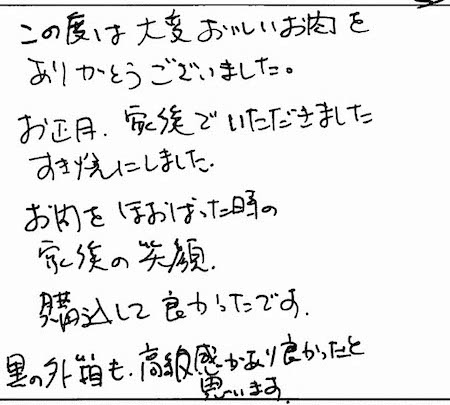 この度は大変おいしいお肉を
ありがとうございました。
お正月、家族でいただきました
すき焼にしました。
お肉をほおばった時の
家族の笑顔。
購入して良かったです。
黒の外箱も、高級感があり良かったと
思います。